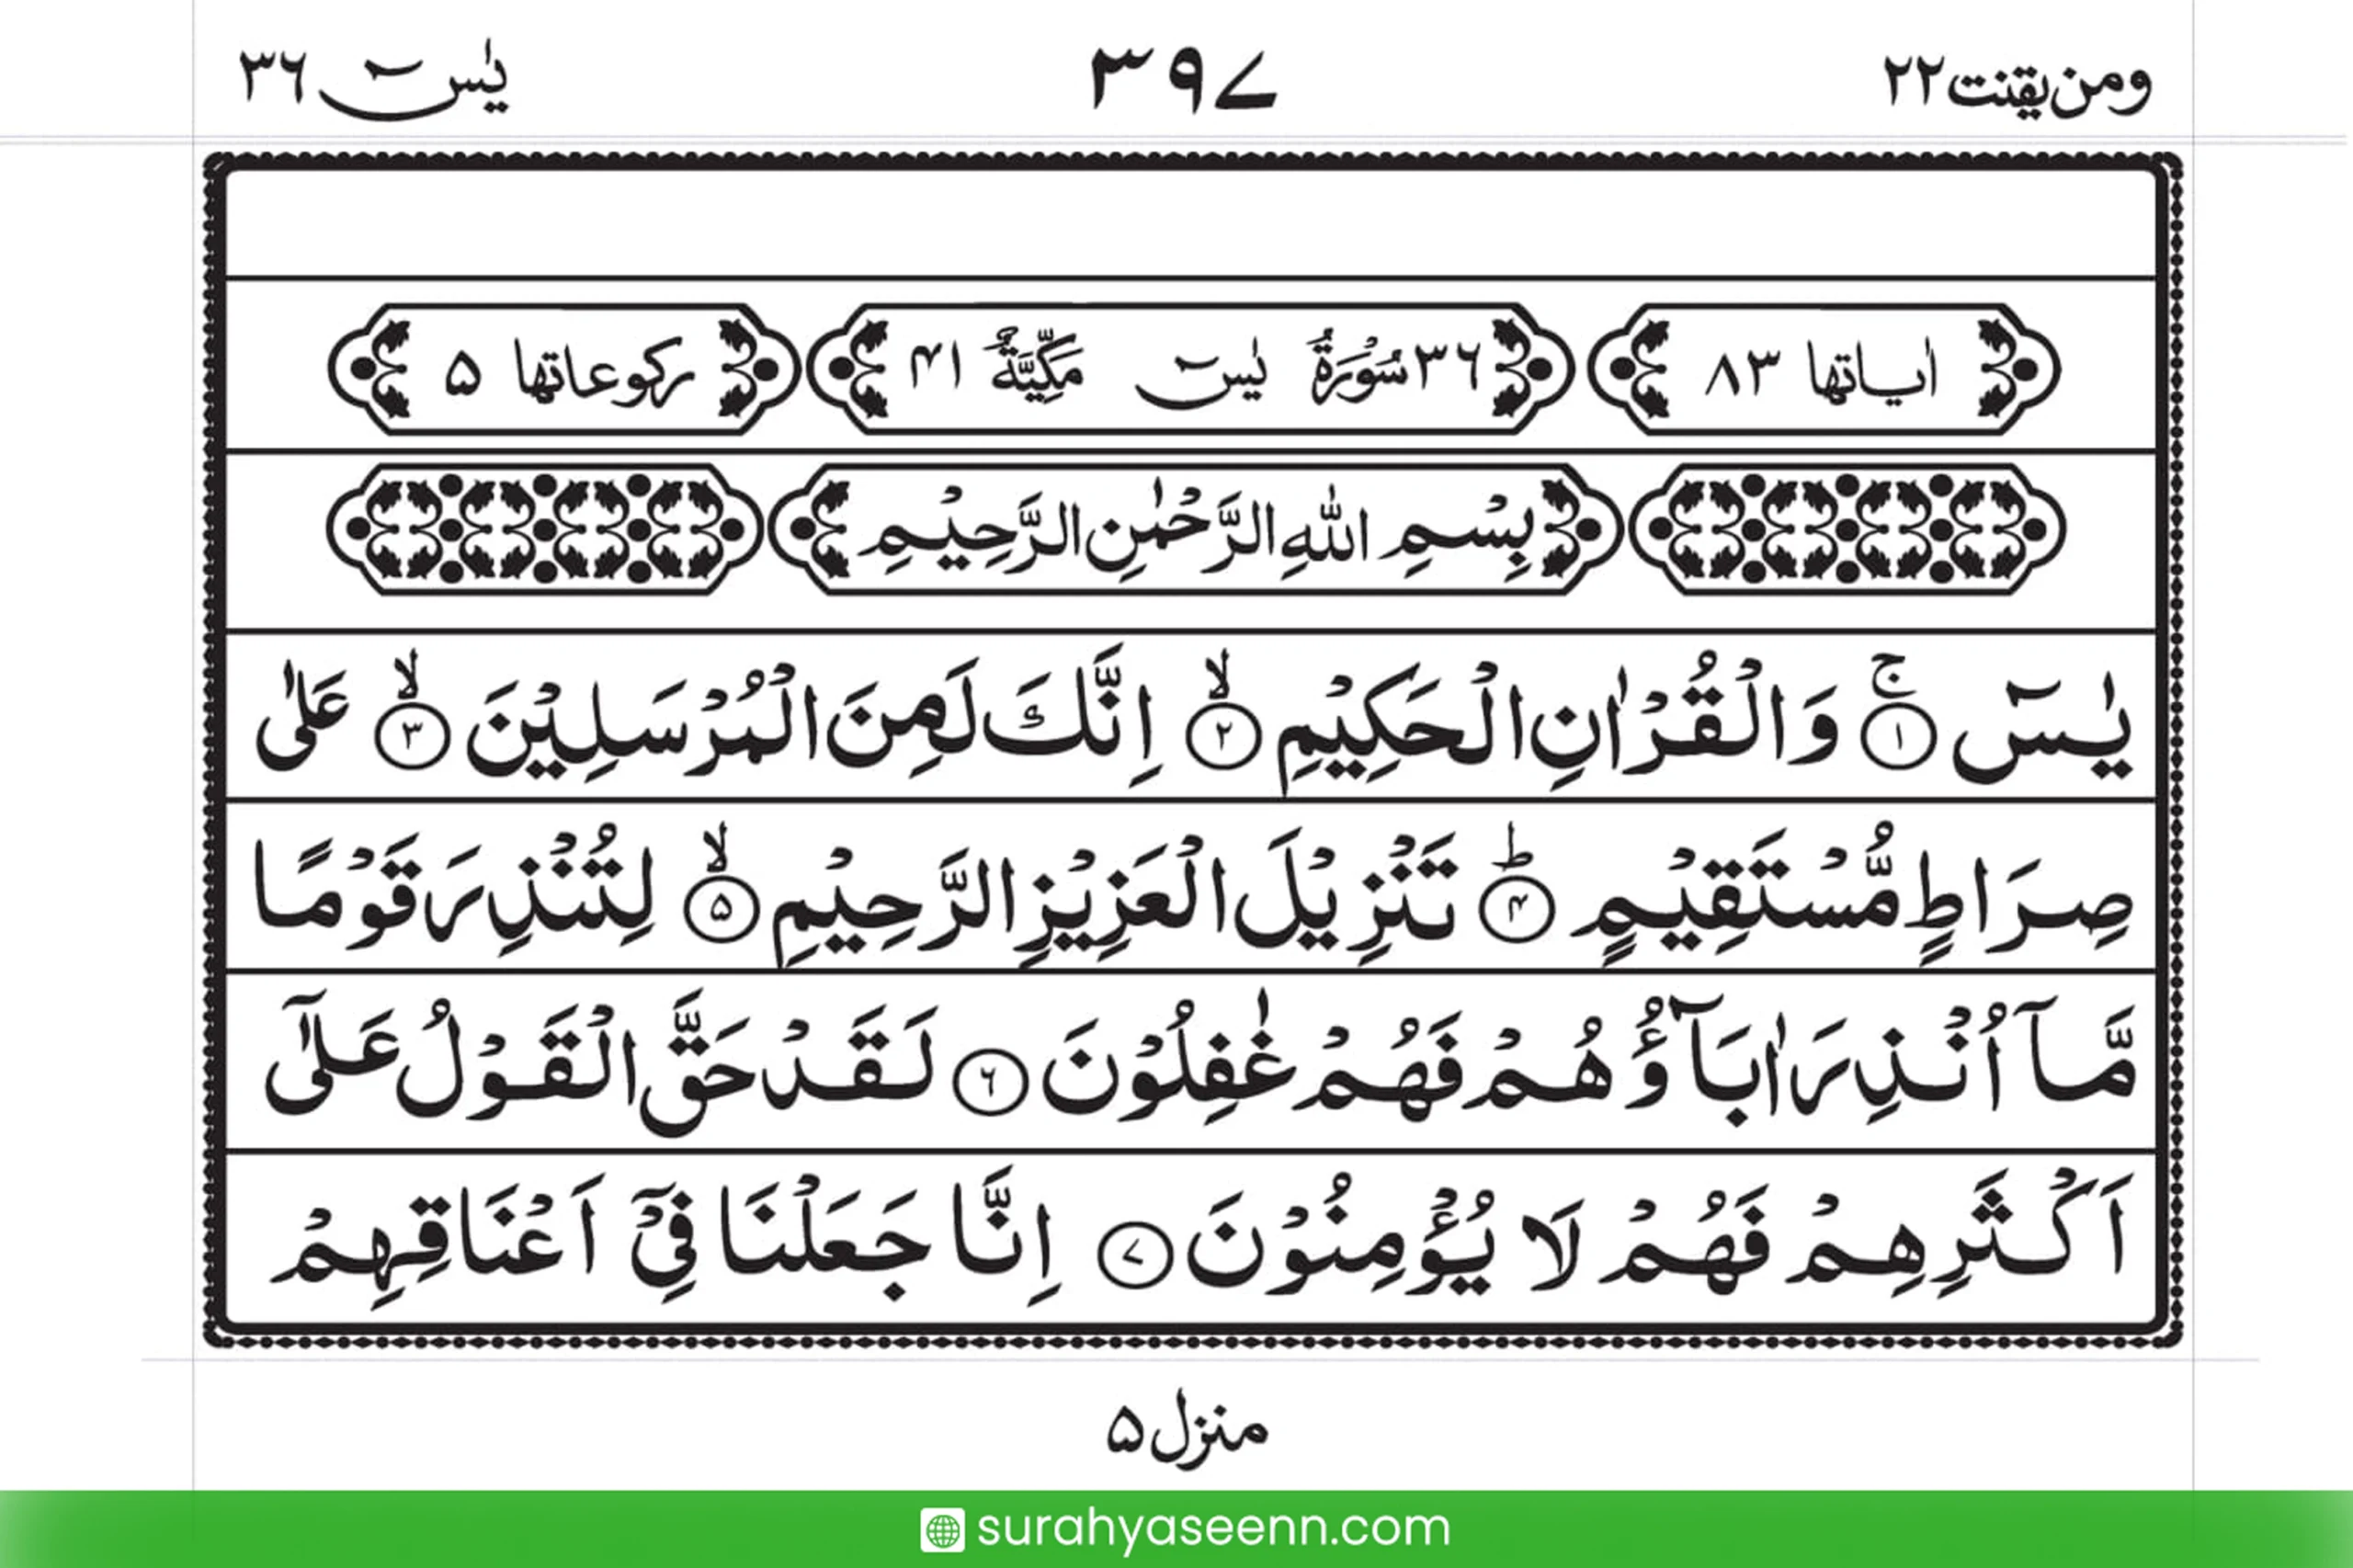 ومن یقنت ۲۲
۳۹۷
یٰسٓ ۳۶
اٰیاتها ۸۳
۳۶ سُوْرَةُ یٰسٓ مَکِّیَّةٌ ۴۱
رکوعاتها ۵
بِسْمِ اللّٰهِ الرَّحْمٰنِ الرَّحِیْمِ
یٰسٓ ۚ﴿۱﴾ وَالْقُرْاٰنِ الْحَکِیْمِ ۙ﴿۲﴾ اِنَّكَ لَمِنَ الْمُرْسَلِیْنَ ۙ﴿۳﴾ عَلٰی
صِرَاطٍ مُّسْتَقِیْمٍ ؕ﴿۴﴾ تَنْزِیْلَ الْعَزِیْزِ الرَّحِیْمِ ۙ﴿۵﴾ لِتُنْذِرَ قَوْمًا
مَّاۤ اُنْذِرَ اٰبَآؤُهُمْ فَهُمْ غٰفِلُوْنَ ﴿۶﴾ لَقَدْ حَقَّ الْقَوْلُ عَلٰۤی
اَکْثَرِهِمْ فَهُمْ لَا یُؤْمِنُوْنَ ﴿۷﴾ اِنَّا جَعَلْنَا فِیْۤ اَعْنَاقِهِمْ
منزل ۵
surahyaseenn.com